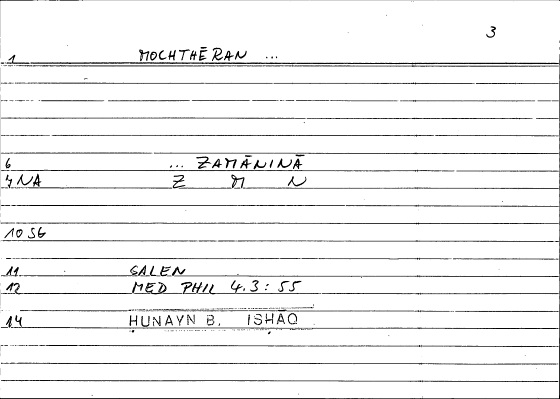 3
1 MOCHTHĒRAN ...
6 ... ZAMĀNINĀ
7 NA Z M N
10 SG
11 GALEN
12 MED PHIL 4.3 : 55
14 ḤUNAYN B. ISḤAQ